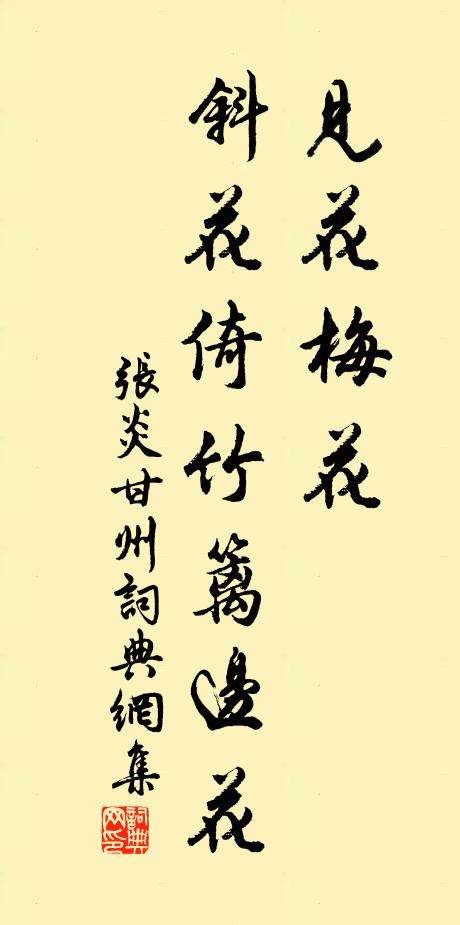 見花梅花
斜花倚竹籬邊花
張炎甘州詞典網集
詞典
网印